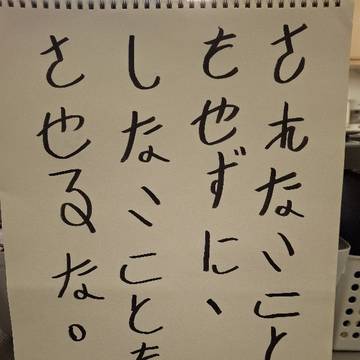 されないこと
もせずに、
しないことを
させるな。